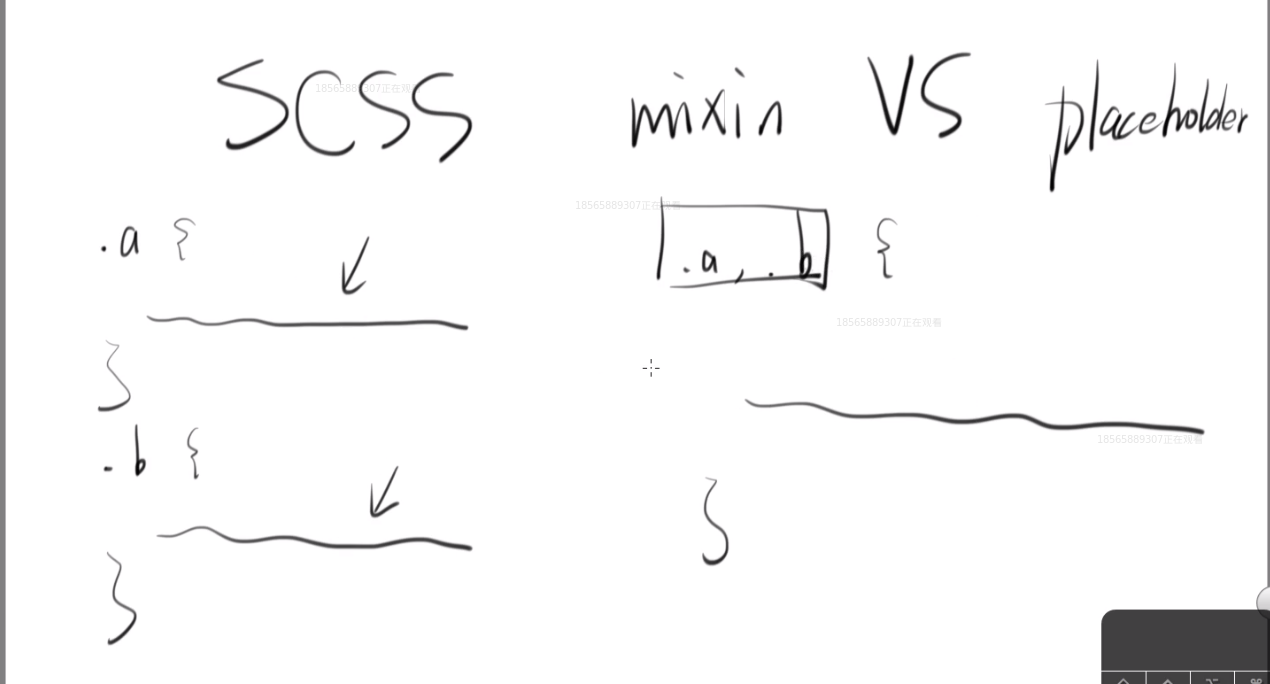 SCSS mixin VS placeholder
18565889307正在观看
18565889307正在观看
.a {
.a, .b {
18565889307正在观看
}
.b {
18565889307正在观看
}
}